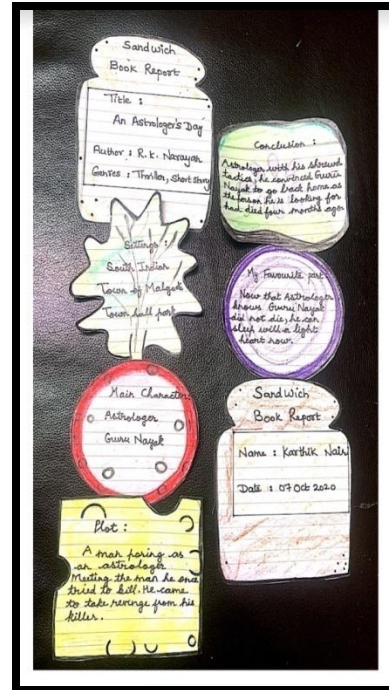 Sandwich
Book Report
Title :
An Astrologer's Day
Author : R.K. Narayan
Genres : Thriller, short story
Settings :
South Indian
Town of Malgudi
Town hall park
Main Characters
Astrologer
Guru Nayak
Plot :
A man posing as
an astrologer
Meeting the man he once
tried to kill. He came
to take revenge from his
killer.
Conclusion :
Astrologer with his shrewd
tactics, he convinced Guru
Nayak to go back home as
the person he is looking for
had died four months ago.
My Favourite part:
Now that Astrologer
knows Guru Nayak
did not die, he can
sleep with a light
heart now.
Sandwich
Book Report
Name : Karthik Nair
Date : 07 Oct 2020